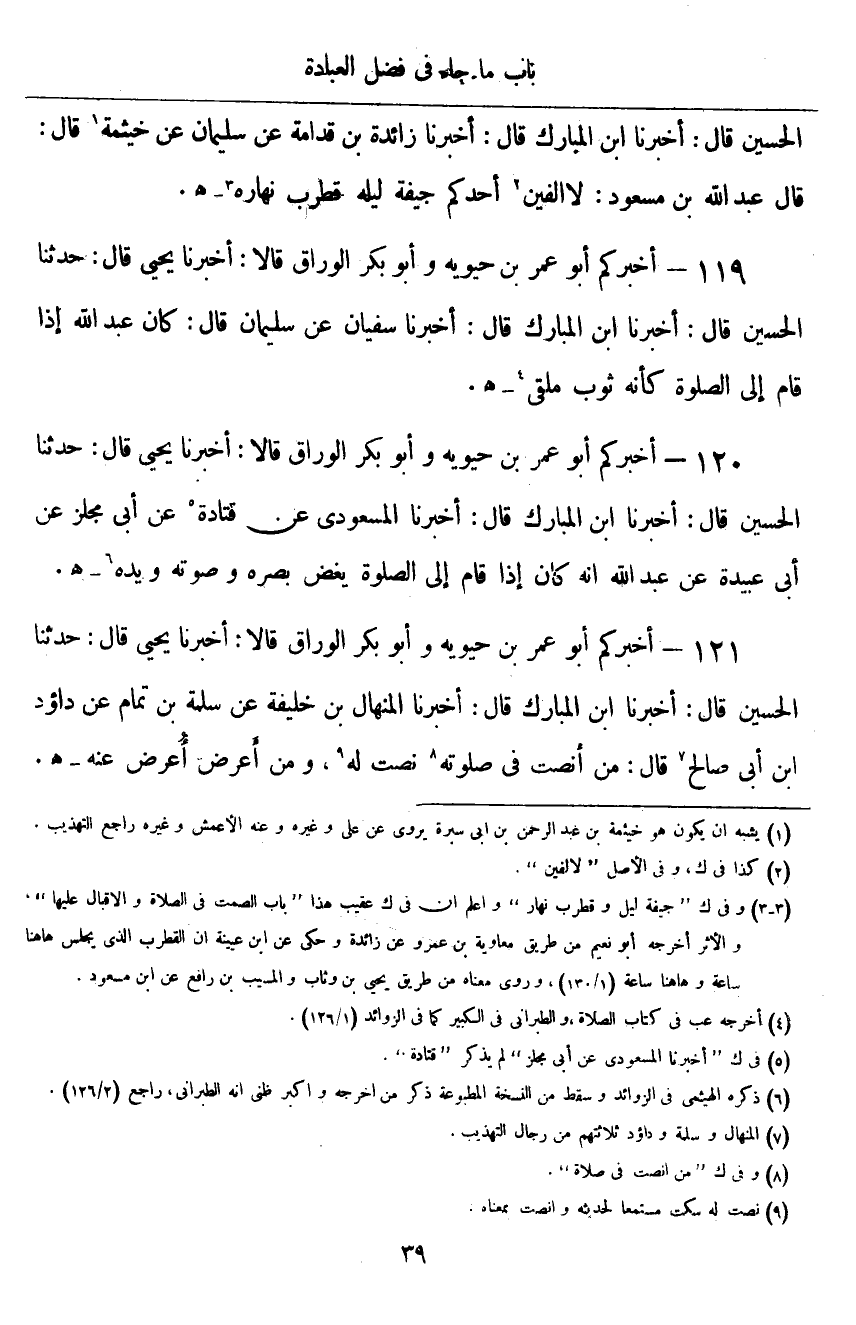 باب ما جاء فى فضل العبادة
الحسين قال : أخبرنا ابن المبارك قال : أخبرنا زائدة بن قدامة عن سليمان عن خيثمة١ قال :
قال عبد الله بن مسعود : لا الفين٢ أحدكم جيفة ليله قطرب نهاره٣ ـ ه .
١١٩ – أخبركم أبو عمر بن حيويه و أبو بكر الوراق قالا : أخبرنا يحيى قال : حدثنا
الحسين قال : أخبرنا ابن المبارك قال : أخبرنا سفيان عن سليمان قال : كان عبد الله إذا
قام إلى الصلوة كأنه ثوب ملقى٤ ـ ه .
١٢٠ – أخبركم أبو عمر بن حيويه و أبو بكر الوراق قالا : أخبرنا يحيى قال : حدثنا
الحسين قال : أخبرنا ابن المبارك قال : أخبرنا المسعودى عن قتادة٥ عن أبى مجلز عن
أبى عبيدة عن عبد الله انه كان إذا قام إلى الصلوة يغض بصره و صوته و يده٦ ـ ه .
١٢١ – أخبركم أبو عمر بن حيويه و أبو بكر الوراق قالا : أخبرنا يحيى قال : حدثنا
الحسين قال : أخبرنا ابن المبارك قال : أخبرنا المنهال بن خليفة عن سلمة بن تمام عن داؤد
ابن أبى صالح٧ قال : من أنصت فى صلوته٨ نصت له٩ ، و من أَعرض أُعرض عنه ـ ه .
(١) يشبه ان يكون هو خيثمة بن عبد الرحمن بن ابى سبرة يروى عن على و غيره و عنه الأعمش و غيره راجع التهذيب .
(٢) كذا فى ك ، و فى الأصل ” لالفين “ .
(٣-٣) و فى ك ” جيفة ليل و قطرب نهار “ و اعلم ان فى ك عقيب هذا ” باب الصمت فى الصلاة و الاقبال عليها “ .
و الأثر أخرجه أبو نعيم من طريق معاوية بن عمرو عن زائدة و حكى عن ابن عيينة ان القطرب الذى يجلس هاهنا
ساعة و هاهنا ساعة (١/١٣٠) ، و روى معناه من طريق يحيى بن وثاب و المسيب بن رافع عن ابن مسعود .
(٤) أخرجه عب فى كتاب الصلاة ، و الطبرانى فى الكبير كما فى الزوائد (١/١٣٦) .
(٥) فى ك ” أخبرنا المسعودى عن أبى مجلز “ لم يذكر ” قتادة “ .
(٦) ذكره الهيثمى فى الزوائد و سقط من النسخة المطبوعة ذكر من اخرجه و اكبر ظنى انه الطبرانى ، راجع (٢/١٣٦) .
(٧) المنهال و سلمة و داؤد ثلاثتهم من رجال التهذيب .
(٨) و فى ك ” من انصت فى صلاة “ .
(٩) نصت له سكت مستمعا لحديثه و انصت بمعناه .
٣٩